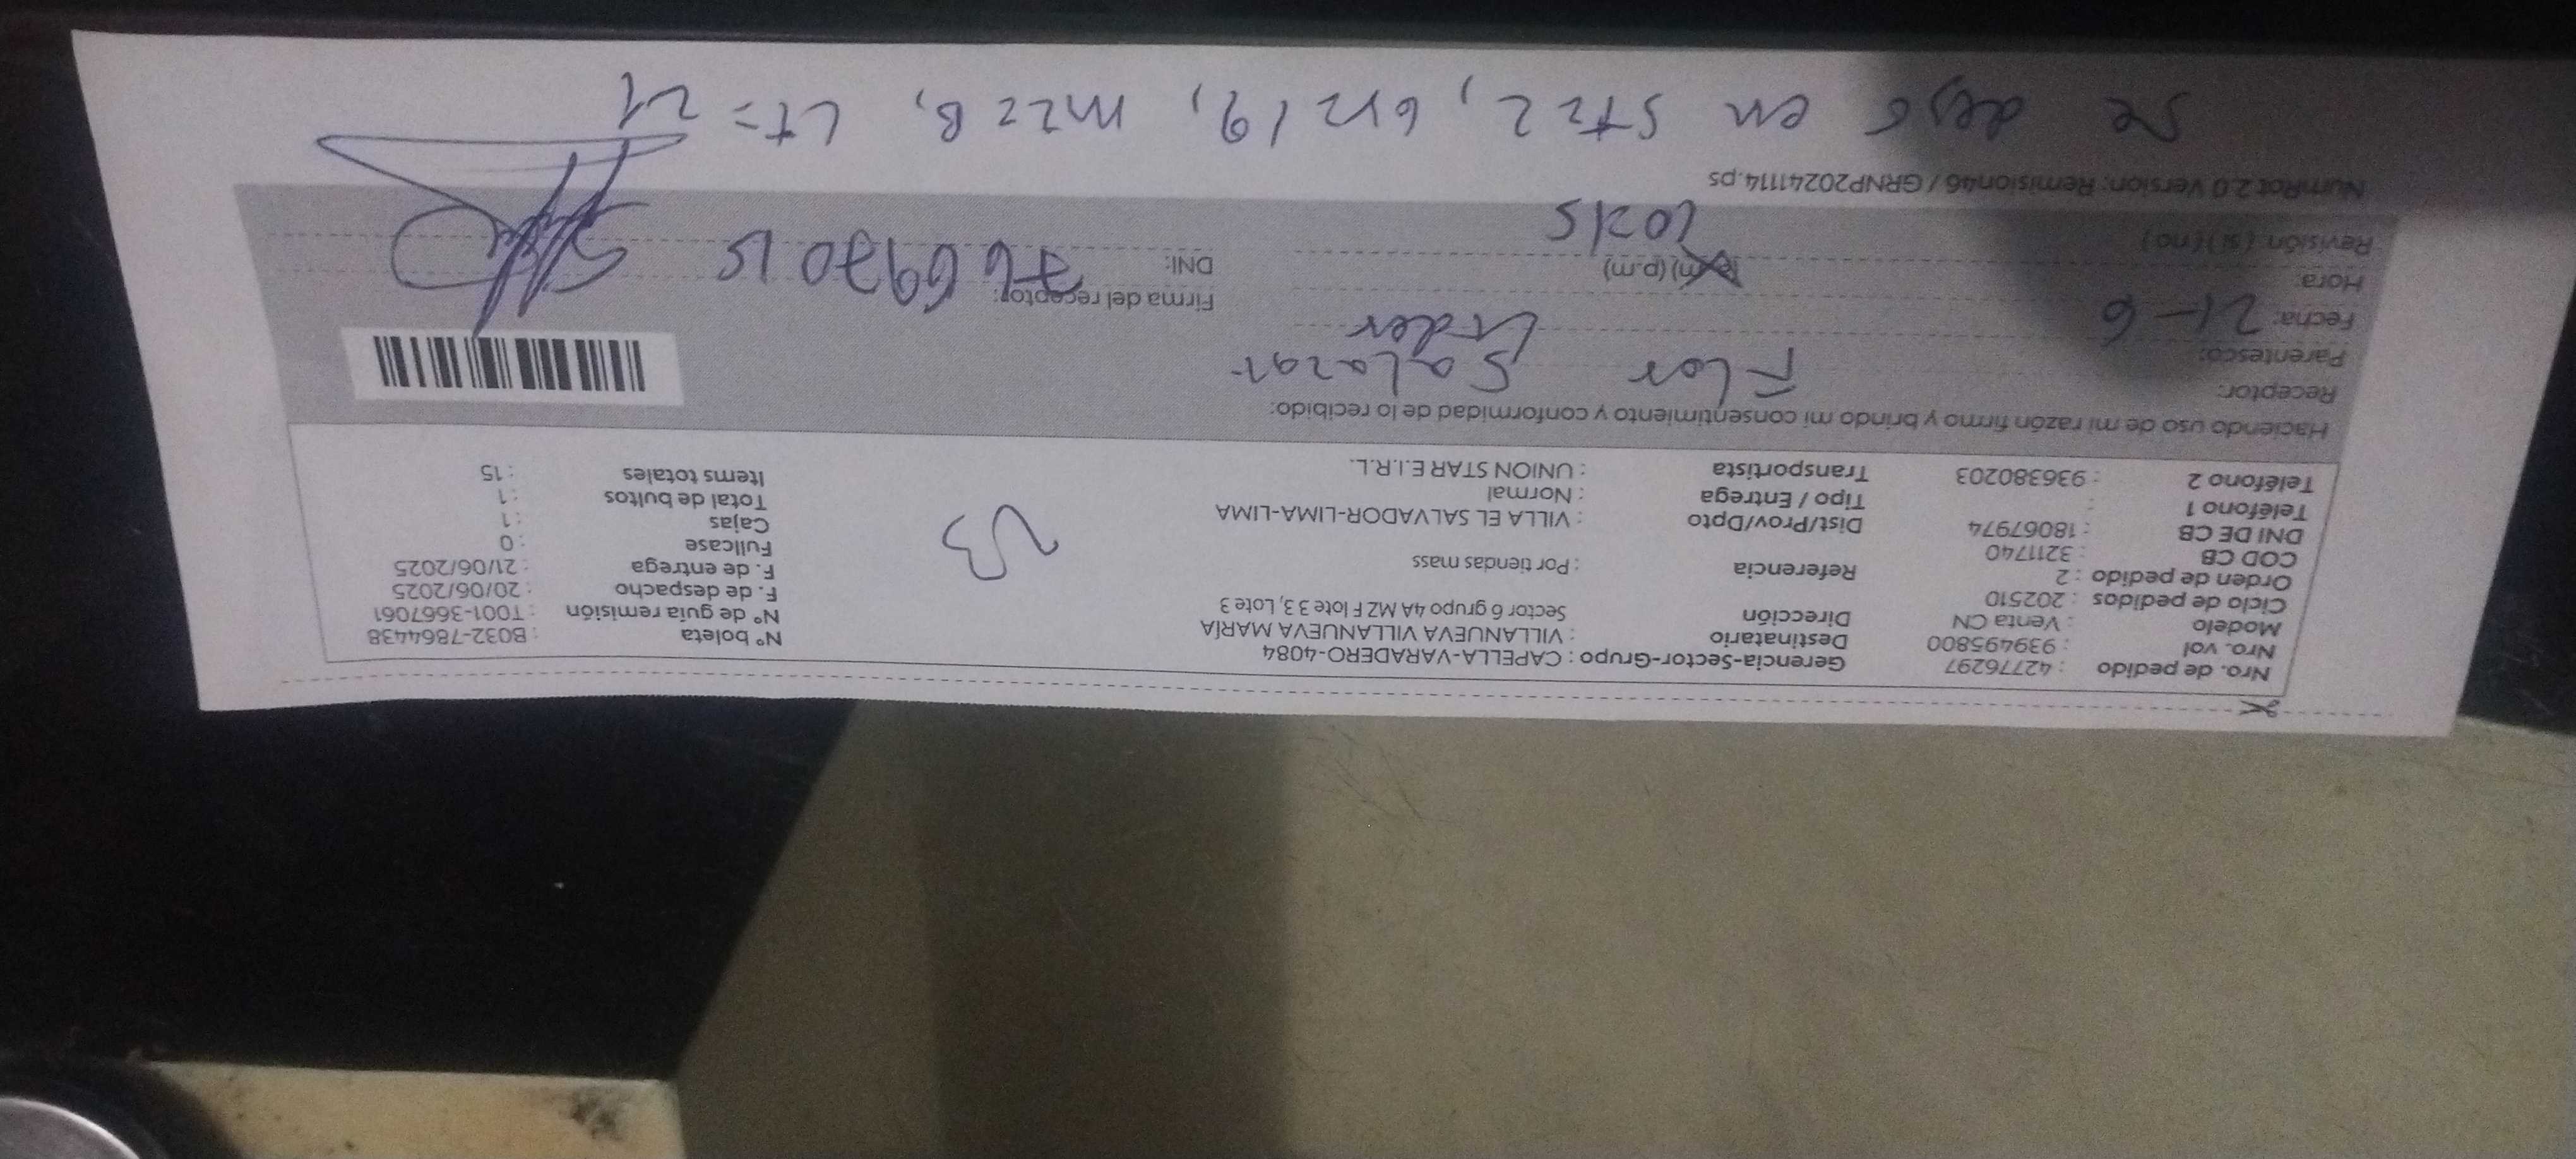 Nro. de pedido : 42776297 Gerencia-Sector-Grupo : CAPELLA-VARADERO-4084 N° boleta : B032-7864438
Nro. vol : 939495800 Destinatario : VILLANUEVA VILLANUEVA MARÍA N° de guia remisión : T001-3667061
Modelo : Venta CN Dirección Sector 6 grupo 4A MZ F lote 3 3, Lote 3 F. de despacho : 20/06/2025
Ciclo de pedidos : 202510 F. de entrega : 21/06/2025
Orden de pedido : 2 Referencia : Por tiendas mass Fullcase : 0
COD CB : 3211740 Cajas : 1
DNI DE CB : 18067974 Dist/Prov/Dpto : VILLA EL SALVADOR-LIMA-LIMA Total de bultos : 1
Teléfono 1 : Tipo / Entrega : Normal Items totales : 15
Teléfono 2 : 936380203 Transportista : UNION STAR E.I.R.L.
Haciendo uso de mi razón firmo y brindo mi consentimiento y conformidad de lo recibido:
Receptor: Flor Salazar
Parentesco: Lider
Fecha: 21-6 Firma del receptor:
Hora: (a.m) (p.m) DNI: 76697015
Revisión: (si) (no) 10215
NumRot 2.0 Version: Remision46 / GRNP20241114.ps
Se dejó en St=2, Gr=19, mz=B, Lt=21